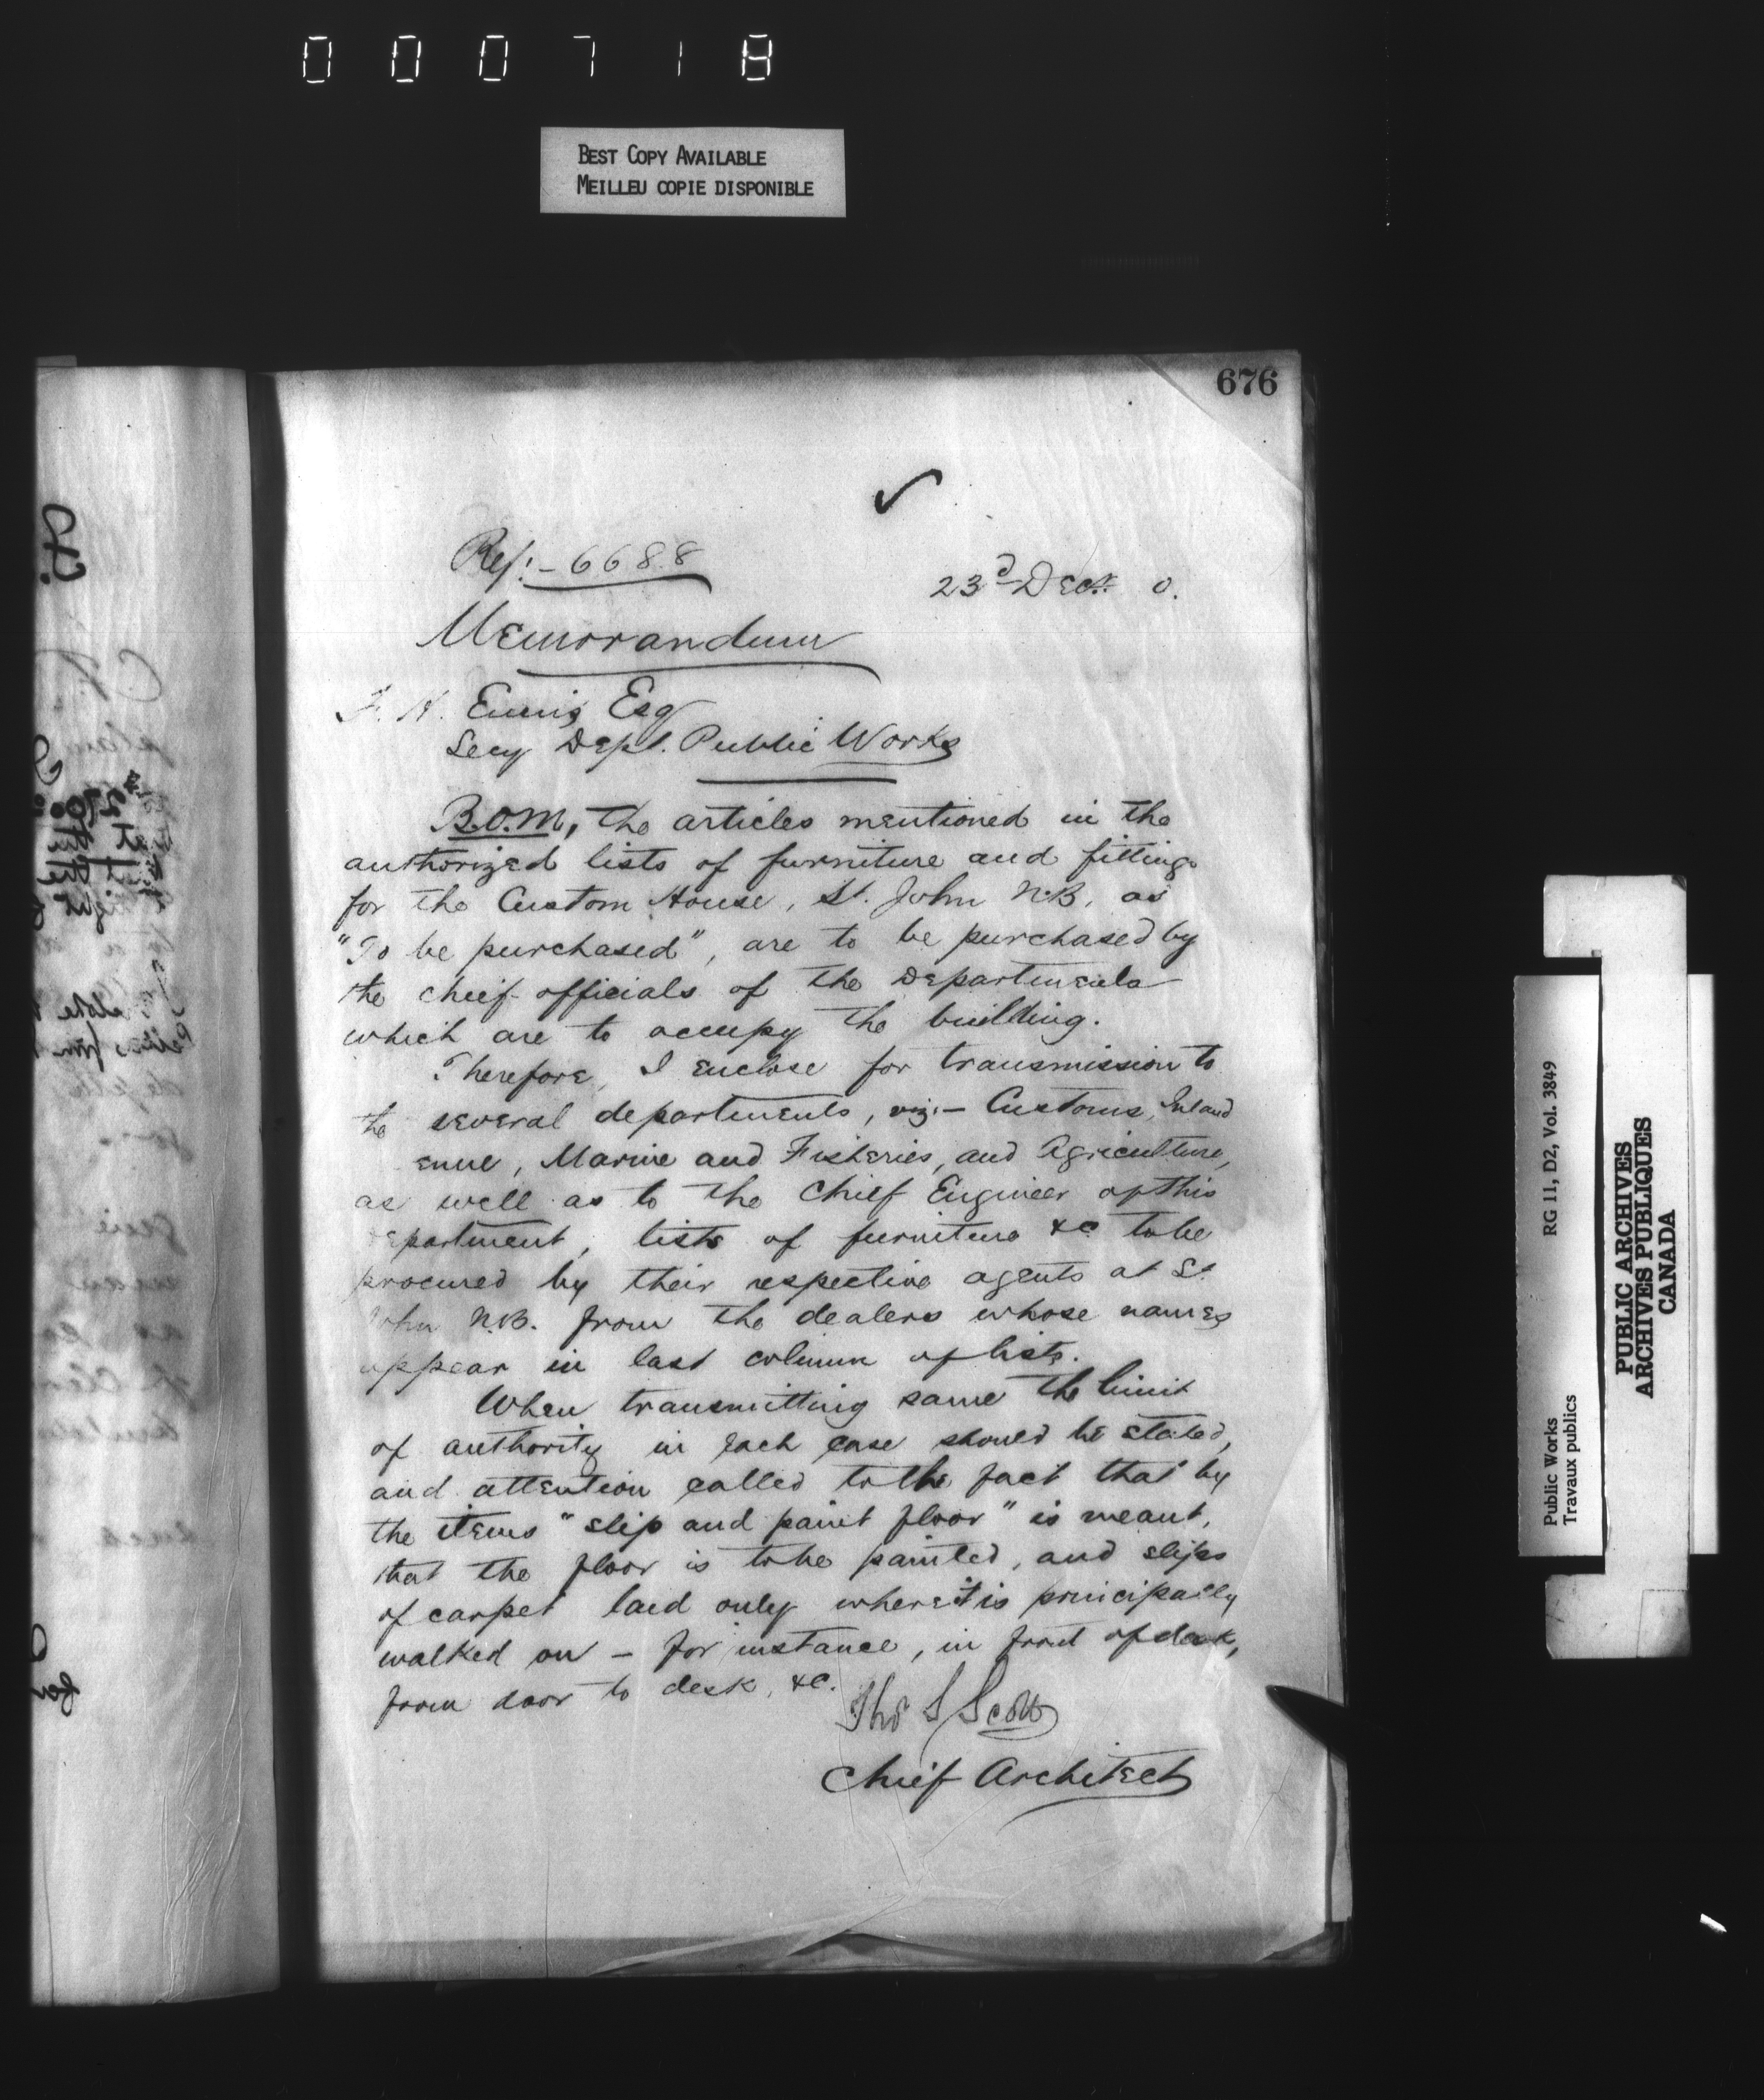 000718
BEST COPY AVAILABLE
MEILLEU COPIE DISPONIBLE
676
Ref:- 6688
23d Decr. 0.
Memorandum
F. H. Ennis Esq
Secy Dept. Public Works
B.O.M, the articles mentioned in the
authorized lists of furniture and fittings
for the Custom House, St. John N.B, as
"To be purchased", are to be purchased by
the chief officials of the Departments
which are to occupy the building.
Therefore, I enclose for transmission to
the several departments, viz:- Customs, Inland
enue, Marine and Fisheries, and Agriculture,
as well as to the Chief Engineer of this
epartment, lists of furniture &c to be
procured by their respective agents at St.
John N.B. from the dealers whose names
appear in last column of lists.
When transmitting same the limit
of authority in each case should be stated,
and attention called to the fact that by
the items "slip and paint floor" is meant,
that the floor is to be painted, and slips
of carpet laid only where it is principally
walked on - for instance, in front of desk,
from door to desk, &c.
Thos S Scott
Chief Architect
RG 11, D2, Vol. 3849
Public Works
Travaux publics
PUBLIC ARCHIVES
ARCHIVES PUBLIQUES
CANADA